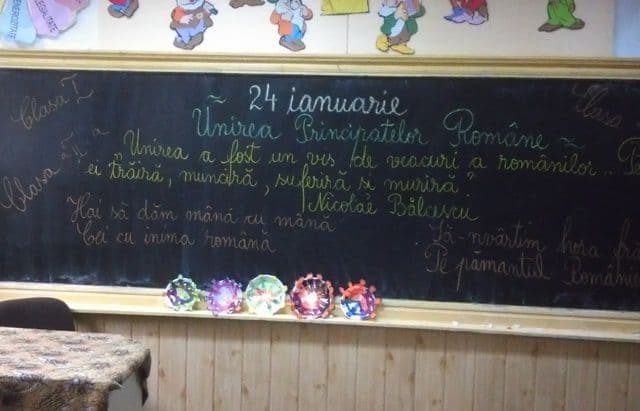 Clasa I
24 ianuarie
Clasa
~ Unirea Principatelor Române ~
Clasa a II a
Unirea a fost un vis de veacuri a românilor.. Pe
ei trăiră, munciră, suferiră si muriră"
Nicolae Bălcescu
Hai să dăm mână cu mână
Cei cu inima română
Să-nvârtim hora fră
Pe pământul Români